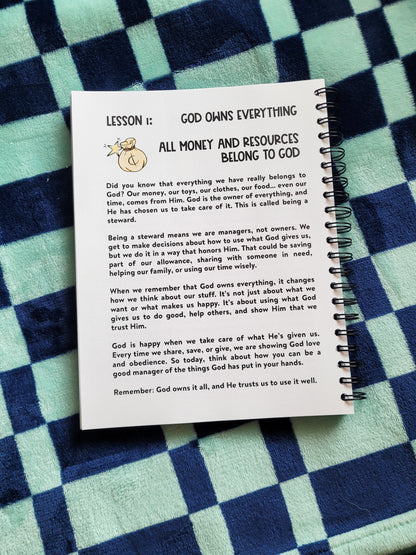 LESSON 1: GOD OWNS EVERYTHING
ALL MONEY AND RESOURCES
BELONG TO GOD
¢
Did you know that everything we have really belongs to
God? Our money, our toys, our clothes, our food... even our
time, comes from Him. God is the owner of everything, and
He has chosen us to take care of it. This is called being a
steward.
Being a steward means we are managers, not owners. We
get to make decisions about how to use what God gives us,
but we do it in a way that honors Him. That could be saving
part of our allowance, sharing with someone in need,
helping our family, or using our time wisely.
When we remember that God owns everything, it changes
how we think about our stuff. It's not just about what we
want or what makes us happy. It's about using what God
gives us to do good, help others, and show Him that we
trust Him.
God is happy when we take care of what He's given us.
Every time we share, save, or give, we are showing God love
and obedience. So today, think about how you can be a
good manager of the things God has put in your hands.
Remember: God owns it all, and He trusts us to use it well.